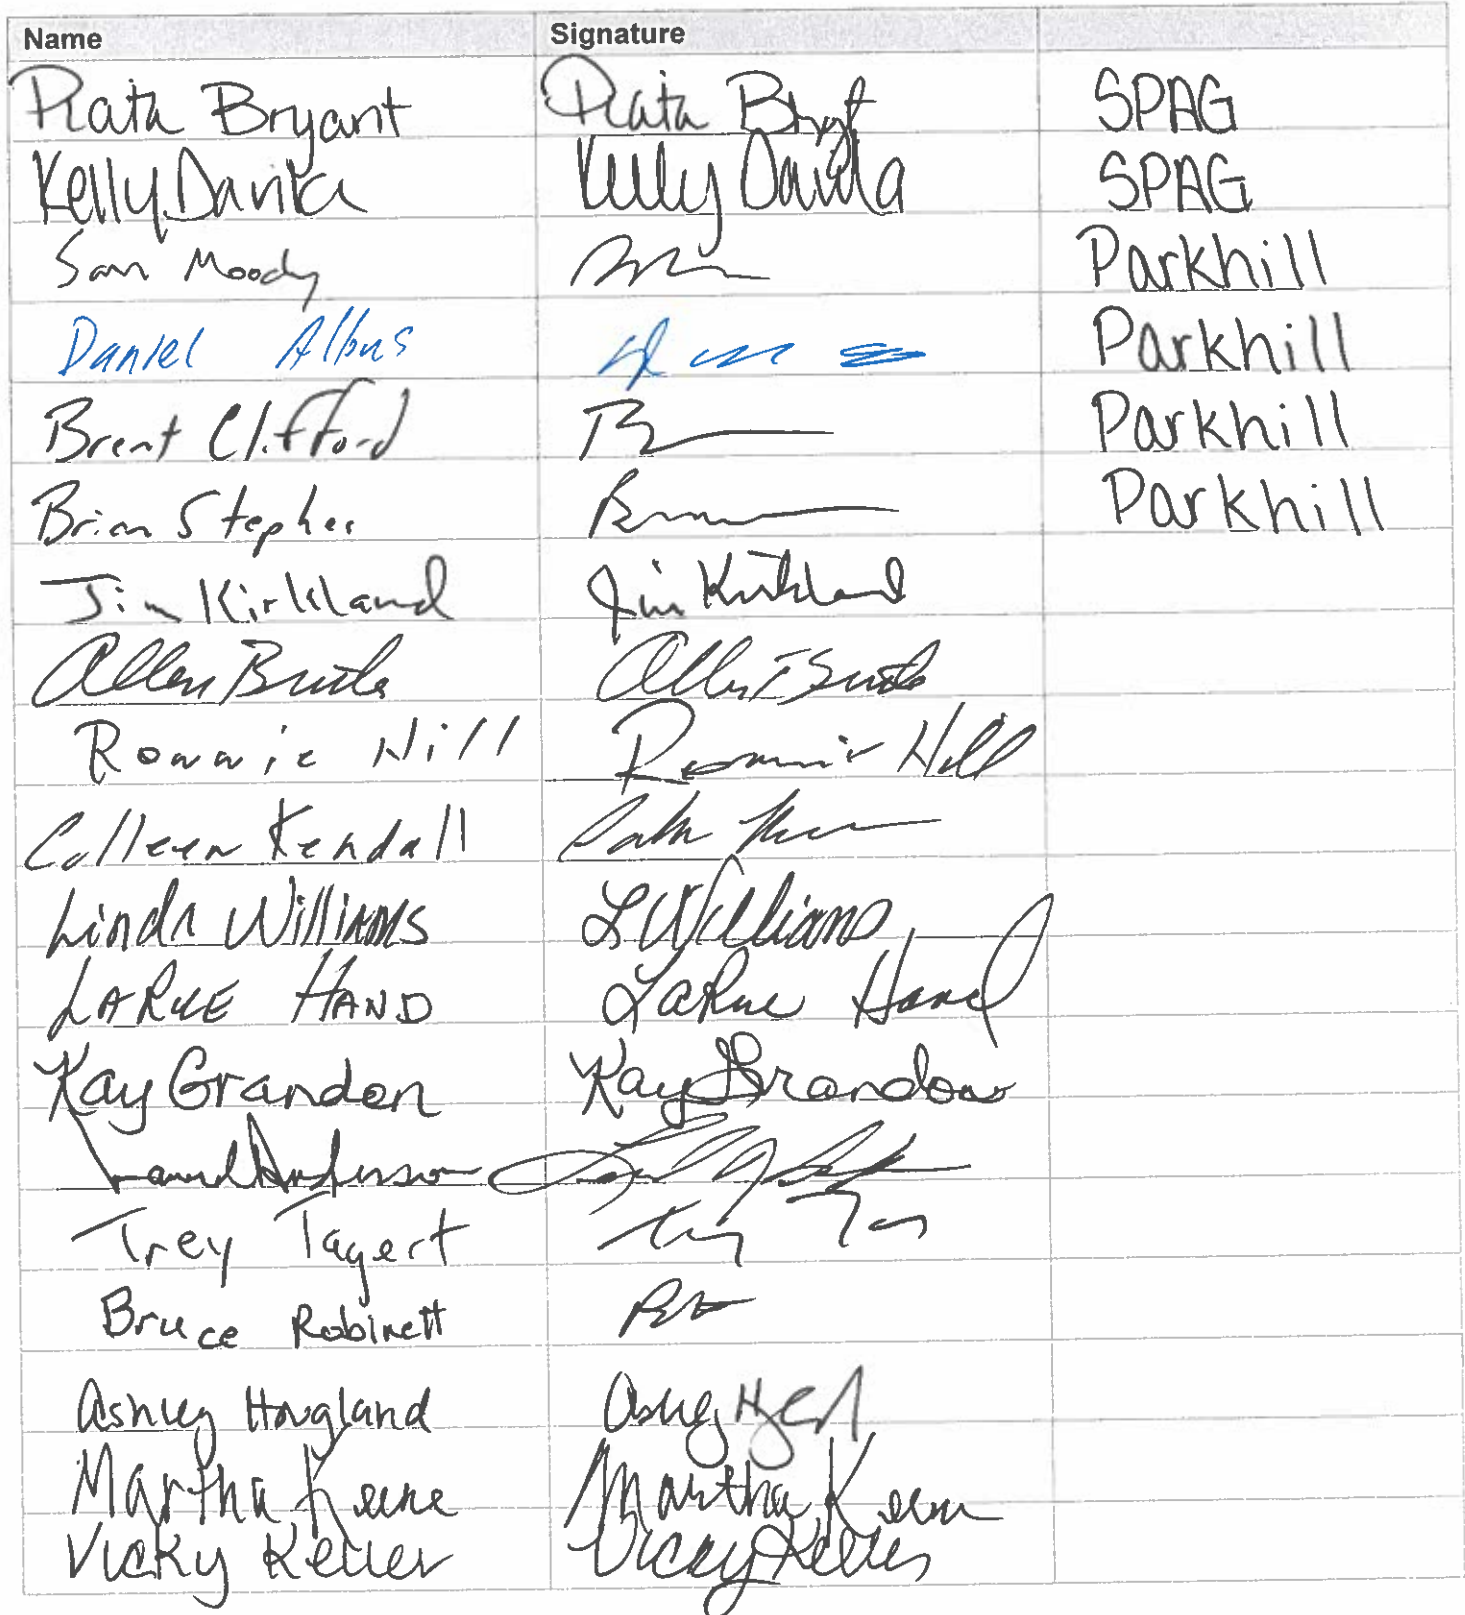 Name Signature
Plata Bryant Plata Bryant SPAG
Kelly Davila Kelly Davila SPAG
Sam Moody Parkhill
Daniel Albus Parkhill
Brent Clifford Parkhill
Brian Stephen Parkhill
Jim Kirkland Jim Kirkland
Allen Allen
Ronnie Hill Ronnie Hill
Colleen Kendall
Linda Williams L Williams
LARUE HAND LaRue Hand
Kay Grandon Kay Grandon
Anderson
Trey Tagert Trey
Bruce Robinett
Ashley Hougland Ashley
Martha Keene Martha Keene
Vicky Keller Vicky Keller